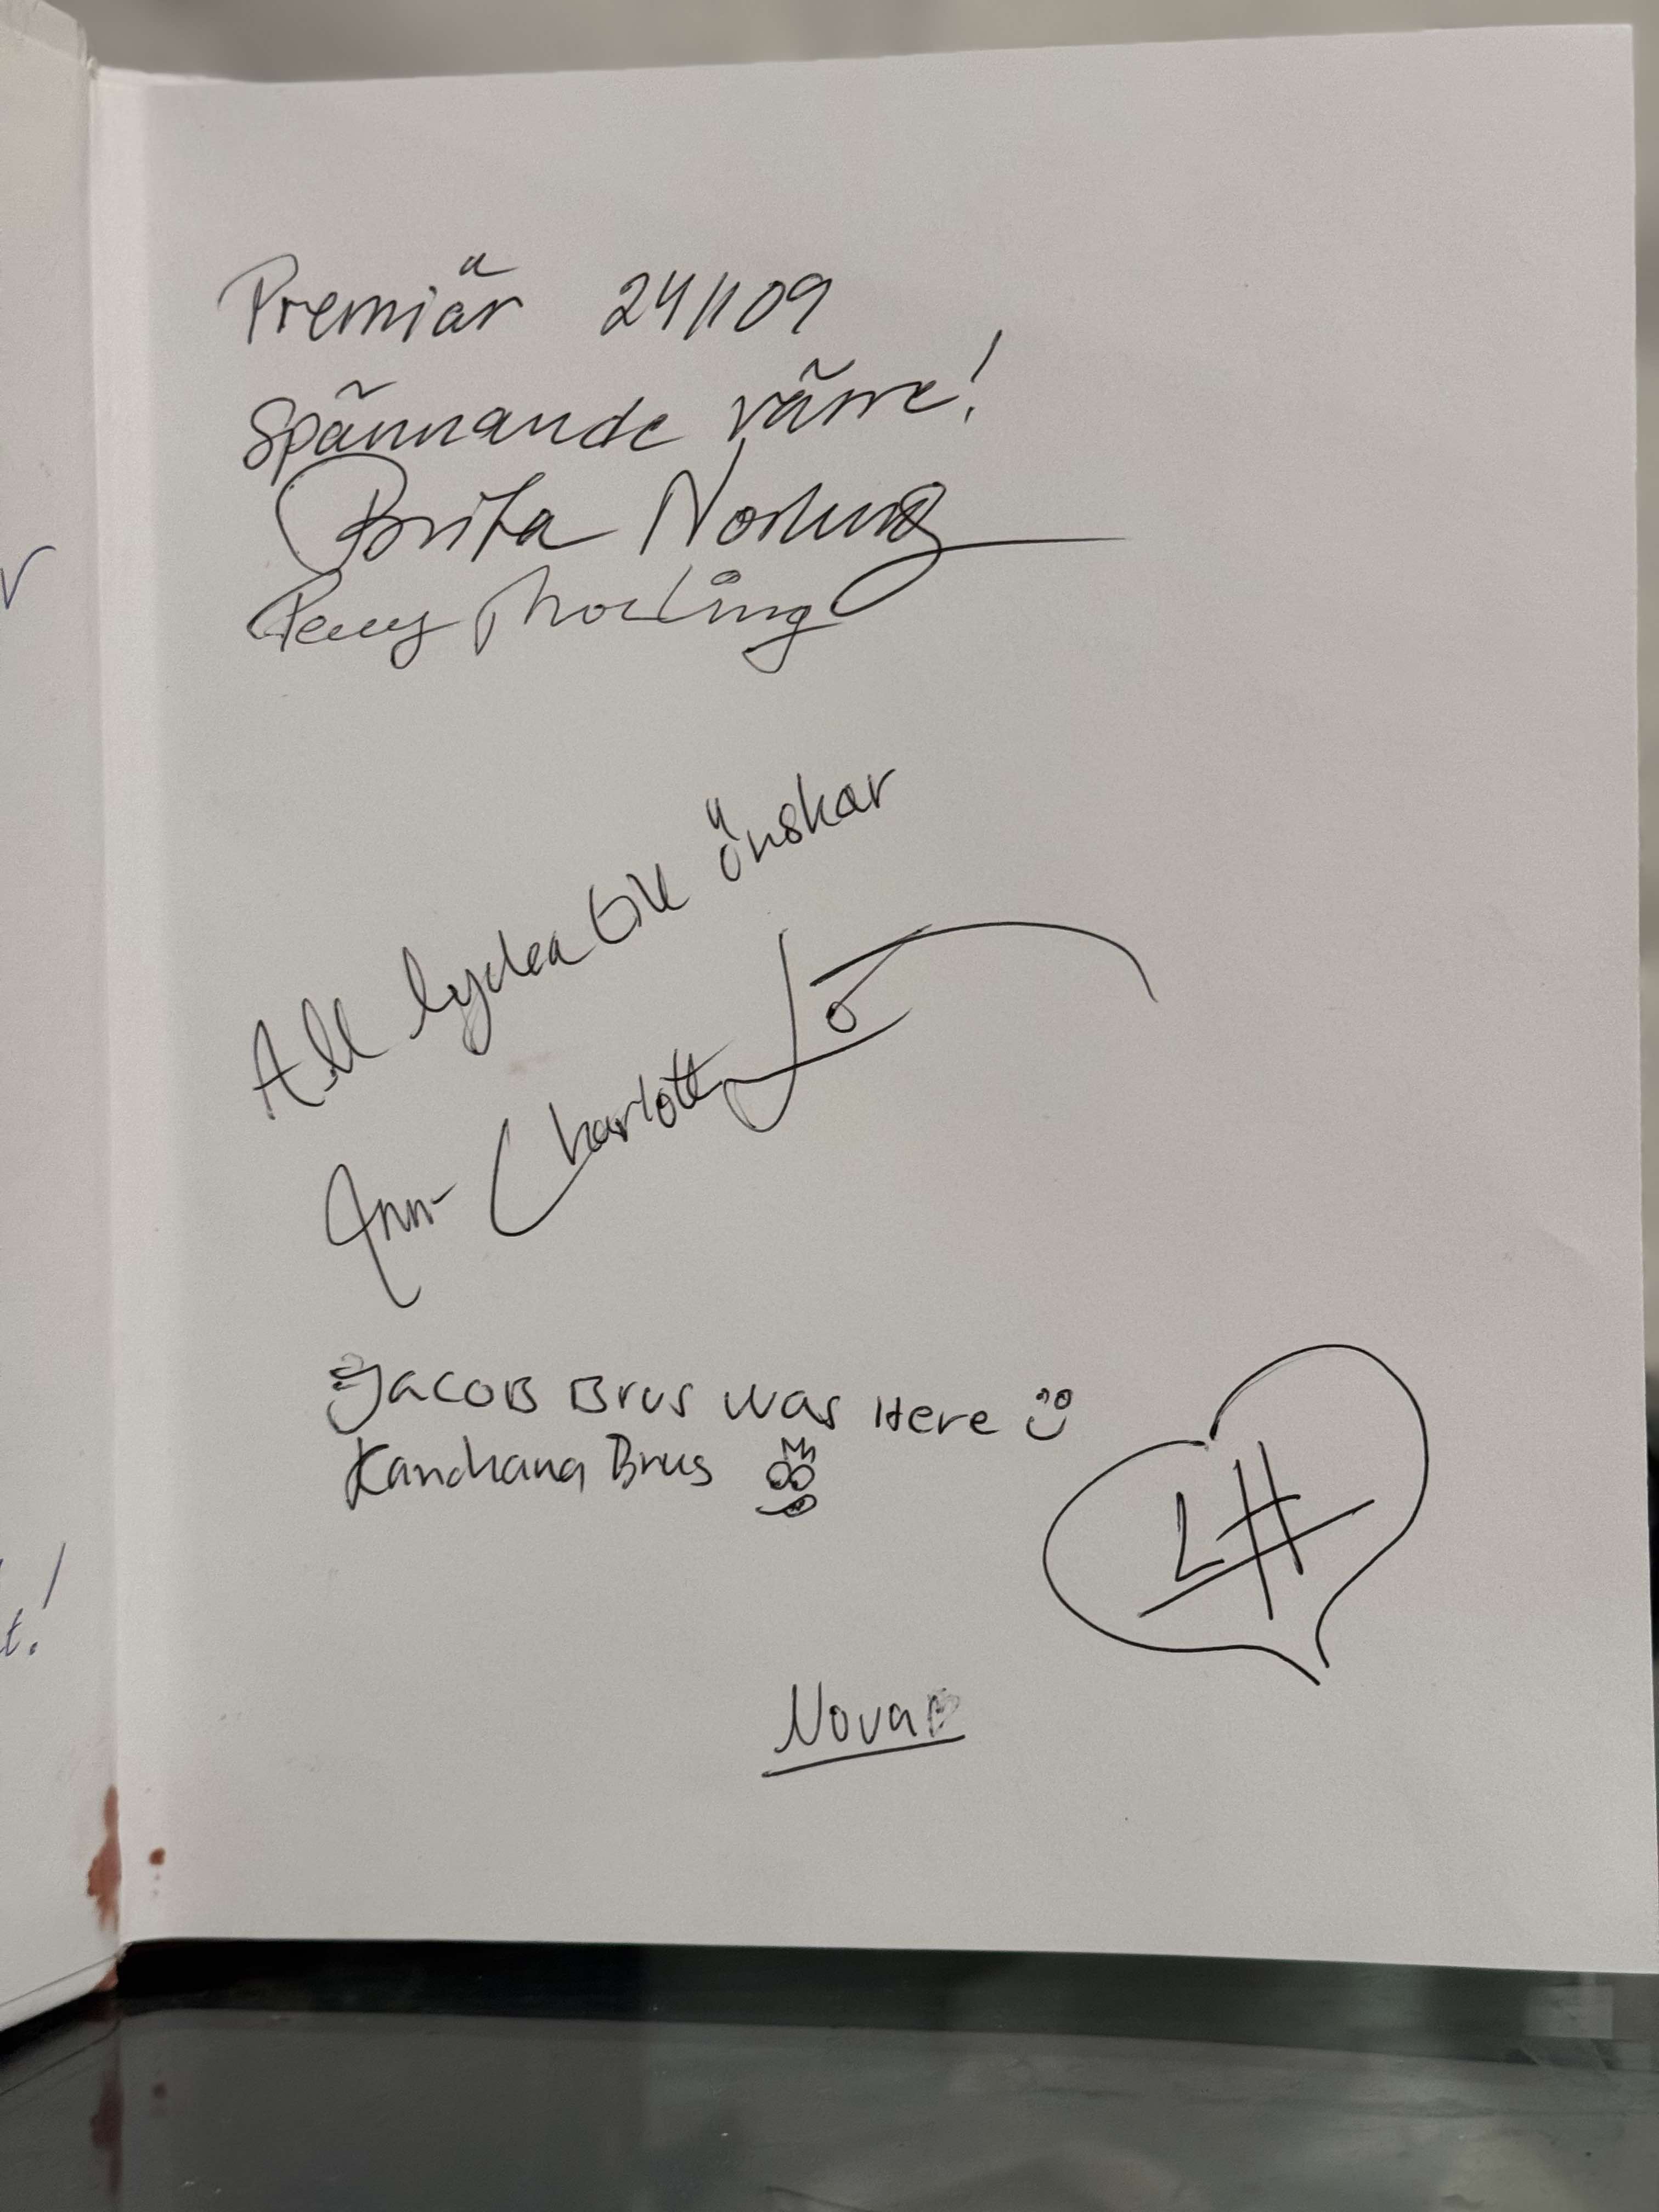 Premiär 24/109
Spännande värre!
Brita Norlung
All lycka till önskar
Ann-Charlotte
Jacob Brus was Here
Kandhana Brus
LH
Nova
t!